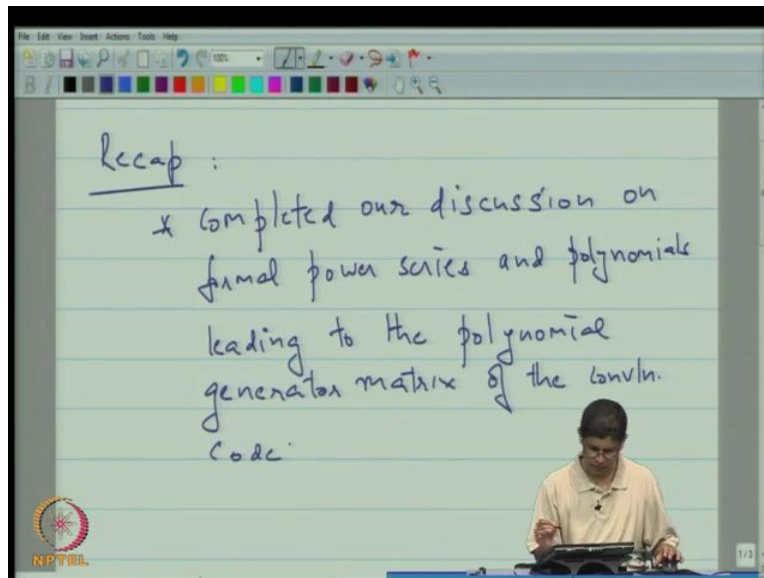 File Edit View Insert Actions Tools Help
100%
B I
Recap :
* Completed our discussion on
formal power series and polynomials
leading to the polynomial
generator matrix of the convln.
Code.
NPTEL
1/3